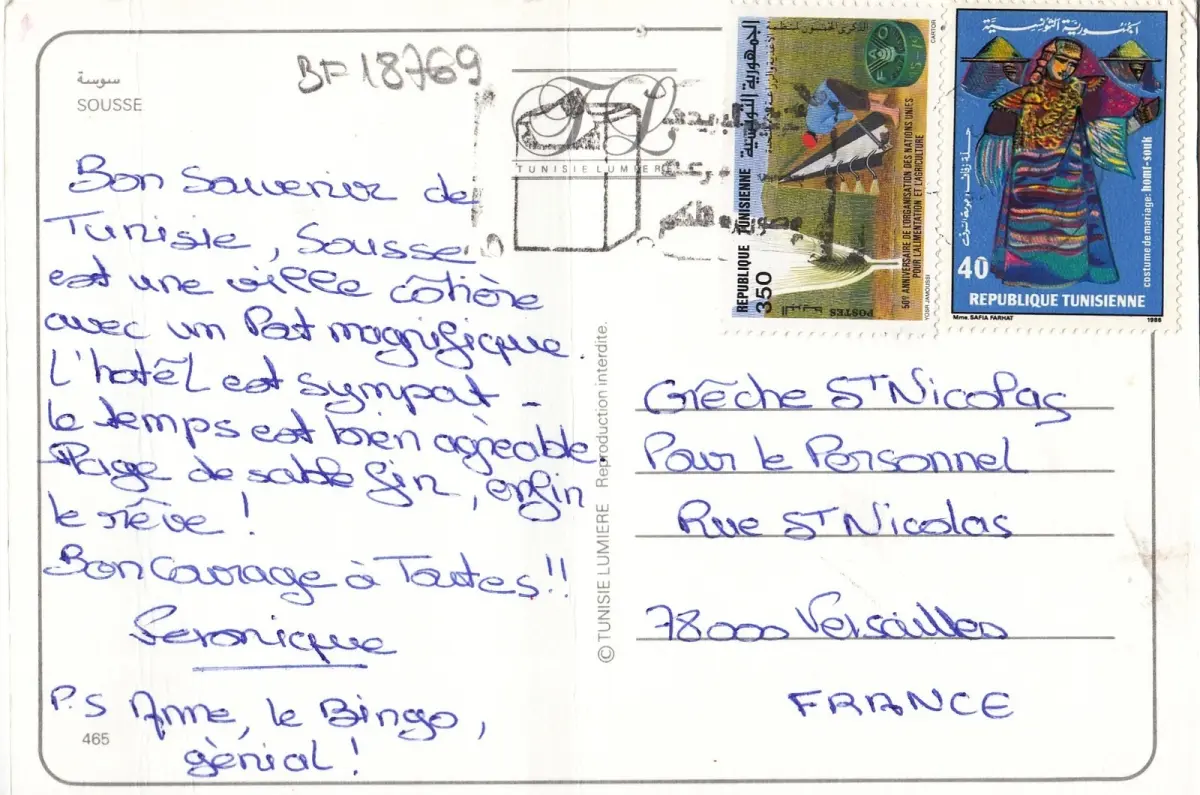 سوسة
SOUSSE
BF 18769
TL
TUNISIE LUMIERE
Bon Souvenir de
Tunisie, Sousse
est une ville côtière
avec un Port magnifique.
L'hotêl est sympat -
le temps est bien agrèable.
Plage de sable fin, enfin
le rêve !
Bon Courage à Toutes !!
Veronique
P.S Anne, le Bingo,
gènial !
465
© TUNISIE LUMIERE Reproduction interdite.
الجمهورية التونسية
REPUBLIQUE TUNISIENNE
350
50e ANNIVERSAIRE DE L'ORGANISATION DES NATIONS UNIES
POUR L'ALIMENTATION ET L'AGRICULTURE
FAO
POSTES
البريد
YOSR JAMOUSSI
CARTOR
الجمهورية التونسية
costume de mariage: homt-souk
40
REPUBLIQUE TUNISIENNE
Mme. SAFIA FARHAT
1988
Crêche ST Nicolas
Pour le Personnel
Rue ST Nicolas
78000 Versailles
FRANCE